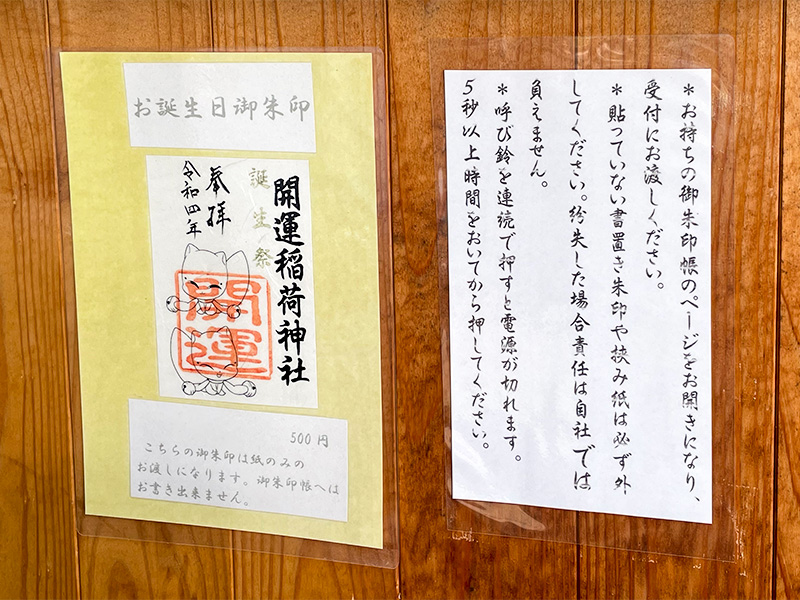 お誕生日御朱印
開運稲荷神社
誕生祭
奉拝
令和四年
開運
500円
こちらの御朱印は紙のみの
お渡しになります。御朱印帳へは
お書き出来ません。
＊お持ちの御朱印帳のページをお開きになり、
受付にお渡しください。
＊貼っていない書置き朱印や挟み紙は必ず外
してください。紛失した場合責任は自社では
負えません。
＊呼び鈴を連続で押すと電源が切れます。
5秒以上時間をおいてから押してください。